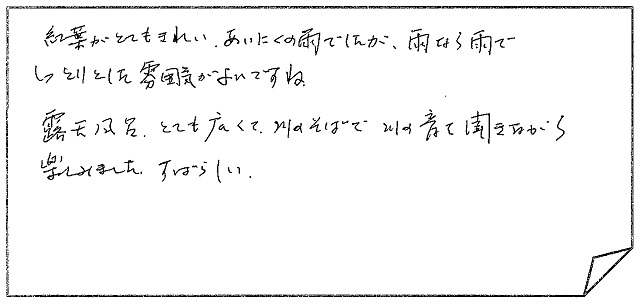 紅葉がとてもきれい。あいにくの雨でしたが、雨なら雨で
しっとりとした雰囲気がよいですね。
露天風呂、とても広くて、川のそばで川の音を聞きながら
楽しみました。すばらしい。